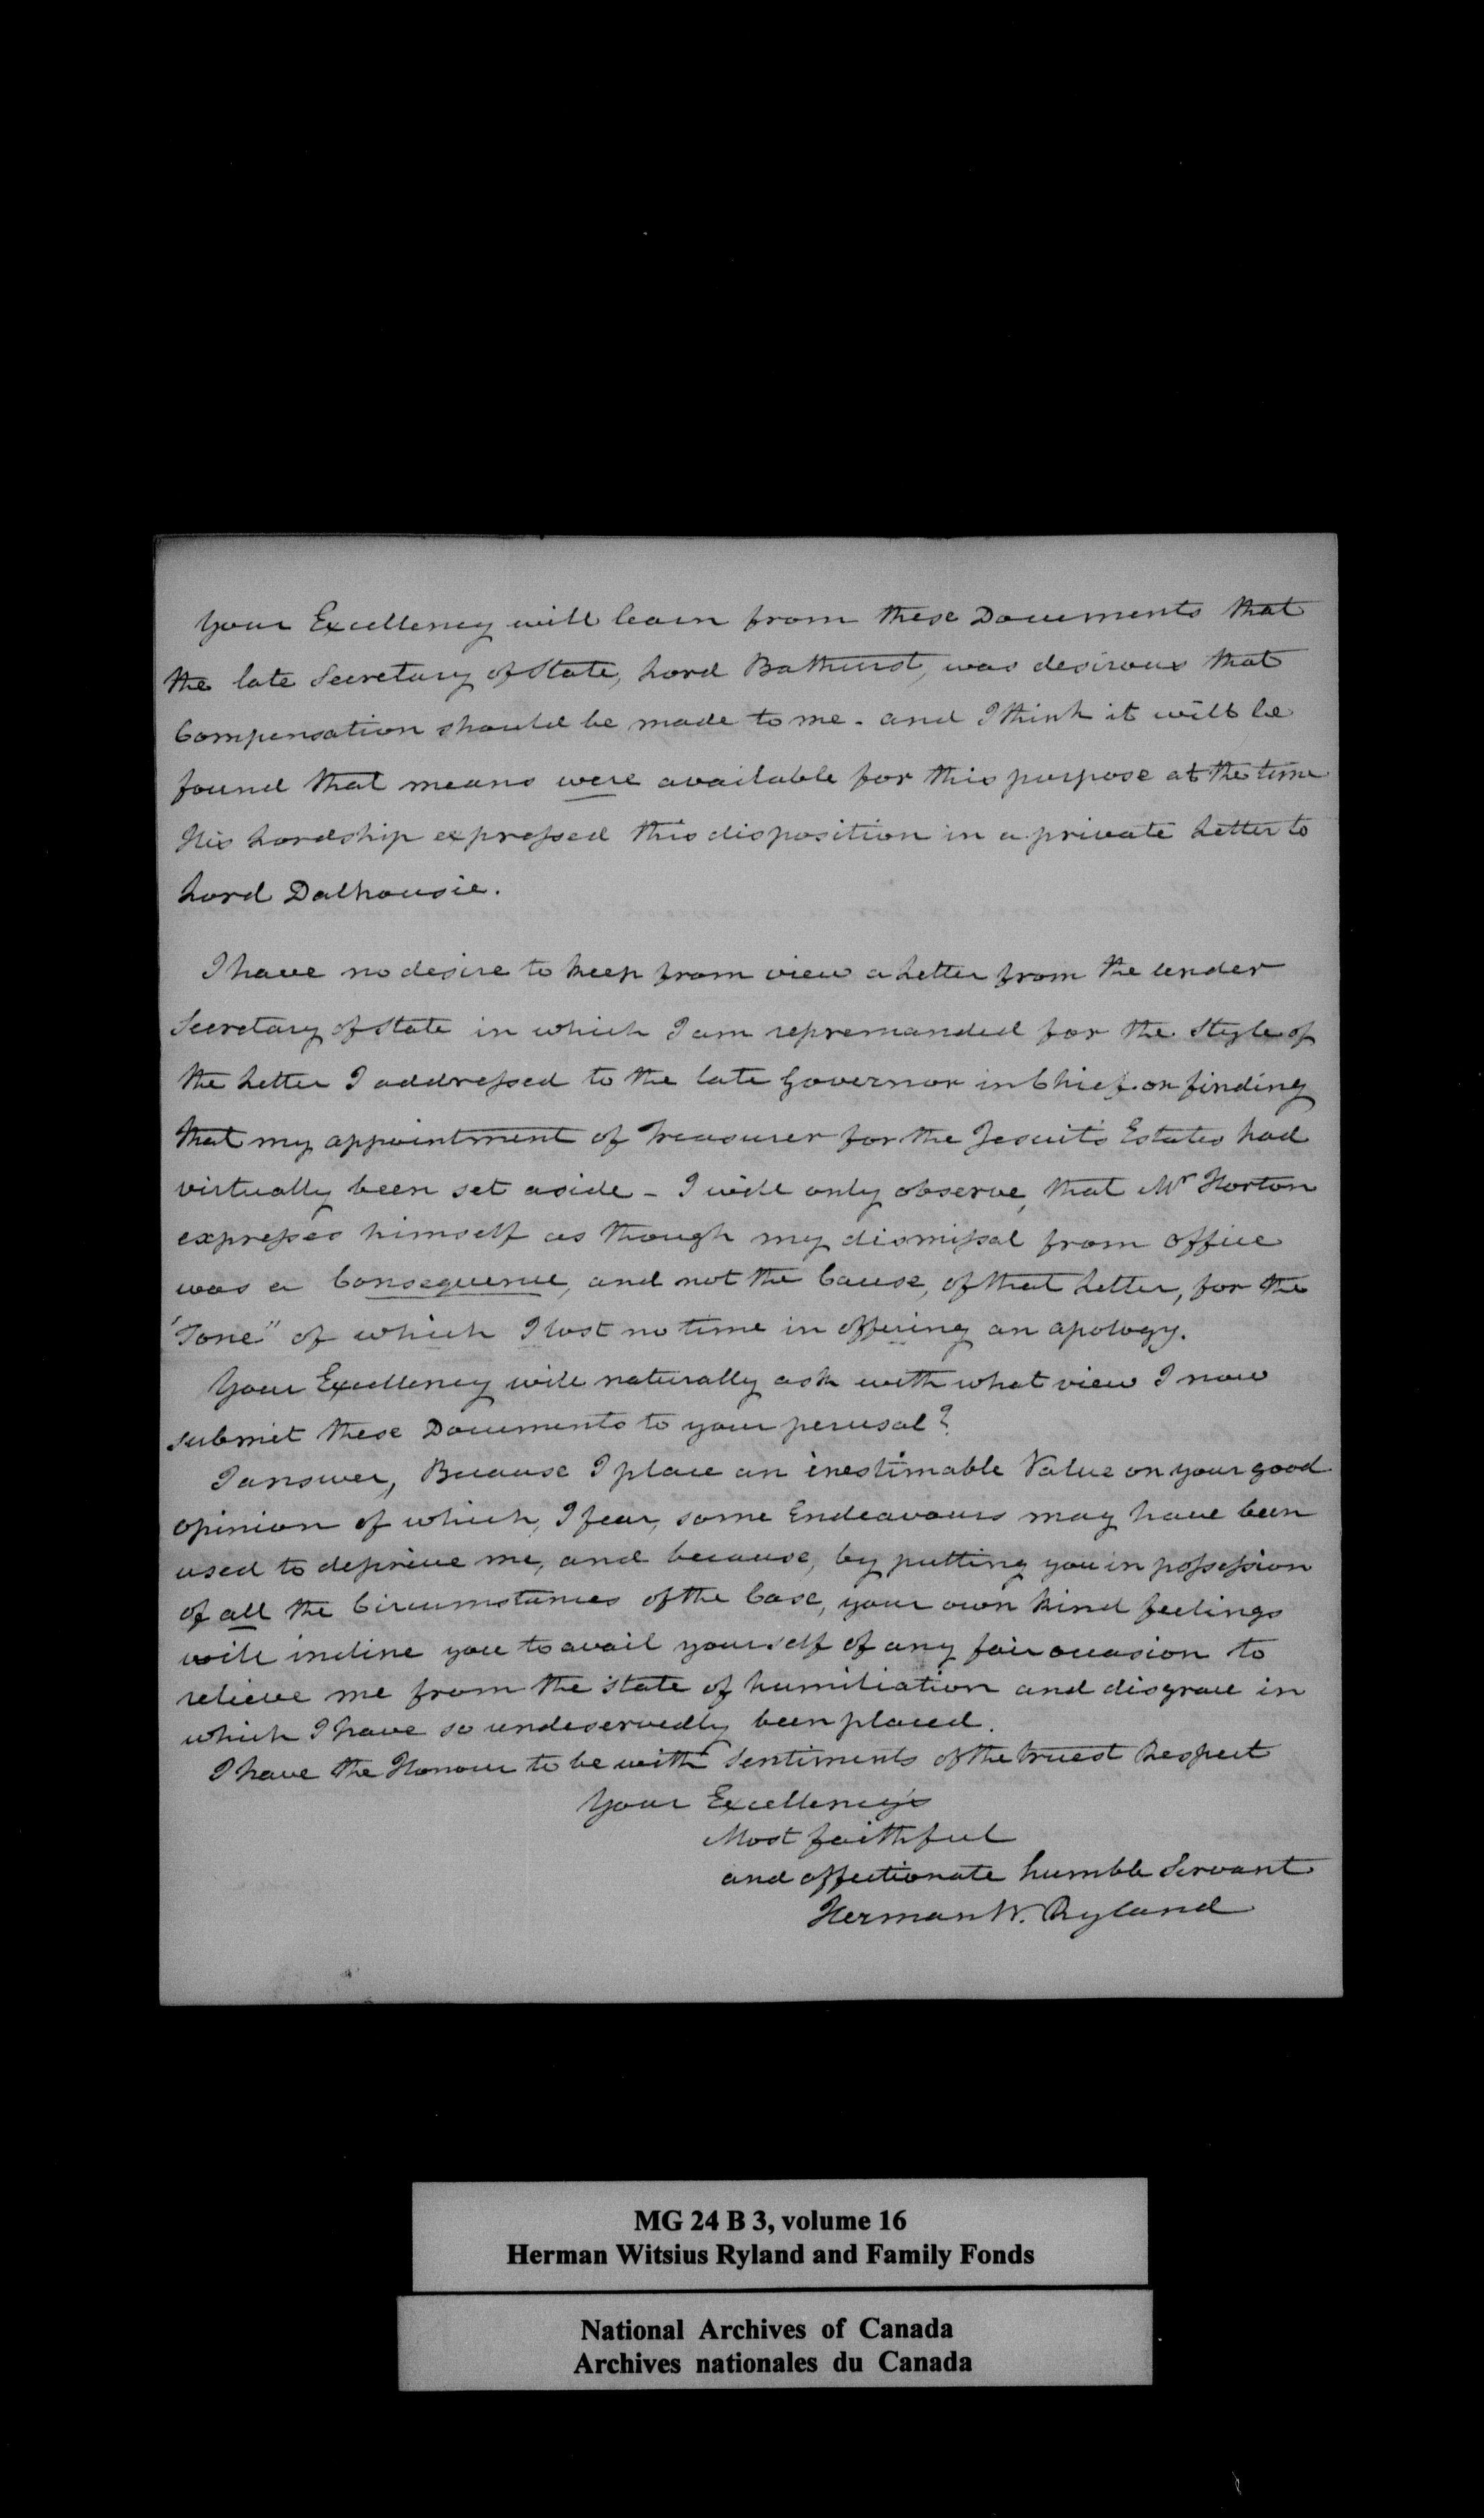 Your Excellency will learn from these Documents that
the late Secretary of State, Lord Bathurst, was desirous that
Compensation should be made to me - and I think it will be
found that means were available for this purpose at the time
His Lordship expressed this disposition in a private Letter to
Lord Dalhousie.
I have no desire to keep from view a Letter from the under
Secretary of State in which I am repremanded for the Style of
the Letter I addressed to the late Governor in Chief on finding
that my appointment of Treasurer for the Jesuit's Estates had
virtually been set aside - I will only observe, that Mr Horton
expresses himself as though my dismissal from office
was a Consequence, and not the Cause, of that Letter, for the
"Tone" of which I lost no time in offering an apology.
Your Excellency will naturally ask with what view I now
submit these Documents to your perusal?
I answer, Because I place an inestimable Value on your good
opinion of which, I fear, some Endeavours may have been
used to deprive me, and because, by putting you in possession
of all the Circumstances of the Case, your own kind feelings
will incline you to avail yourself of any fair occasion to
relieve me from the state of humiliation and disgrace in
which I have so undeservedly been placed.
I have the Honour to be with Sentiments of the truest Respect
Your Excellency's
Most faithful
and affectionate humble Servant
Herman W. Ryland
MG 24 B 3, volume 16
Herman Witsius Ryland and Family Fonds
National Archives of Canada
Archives nationales du Canada